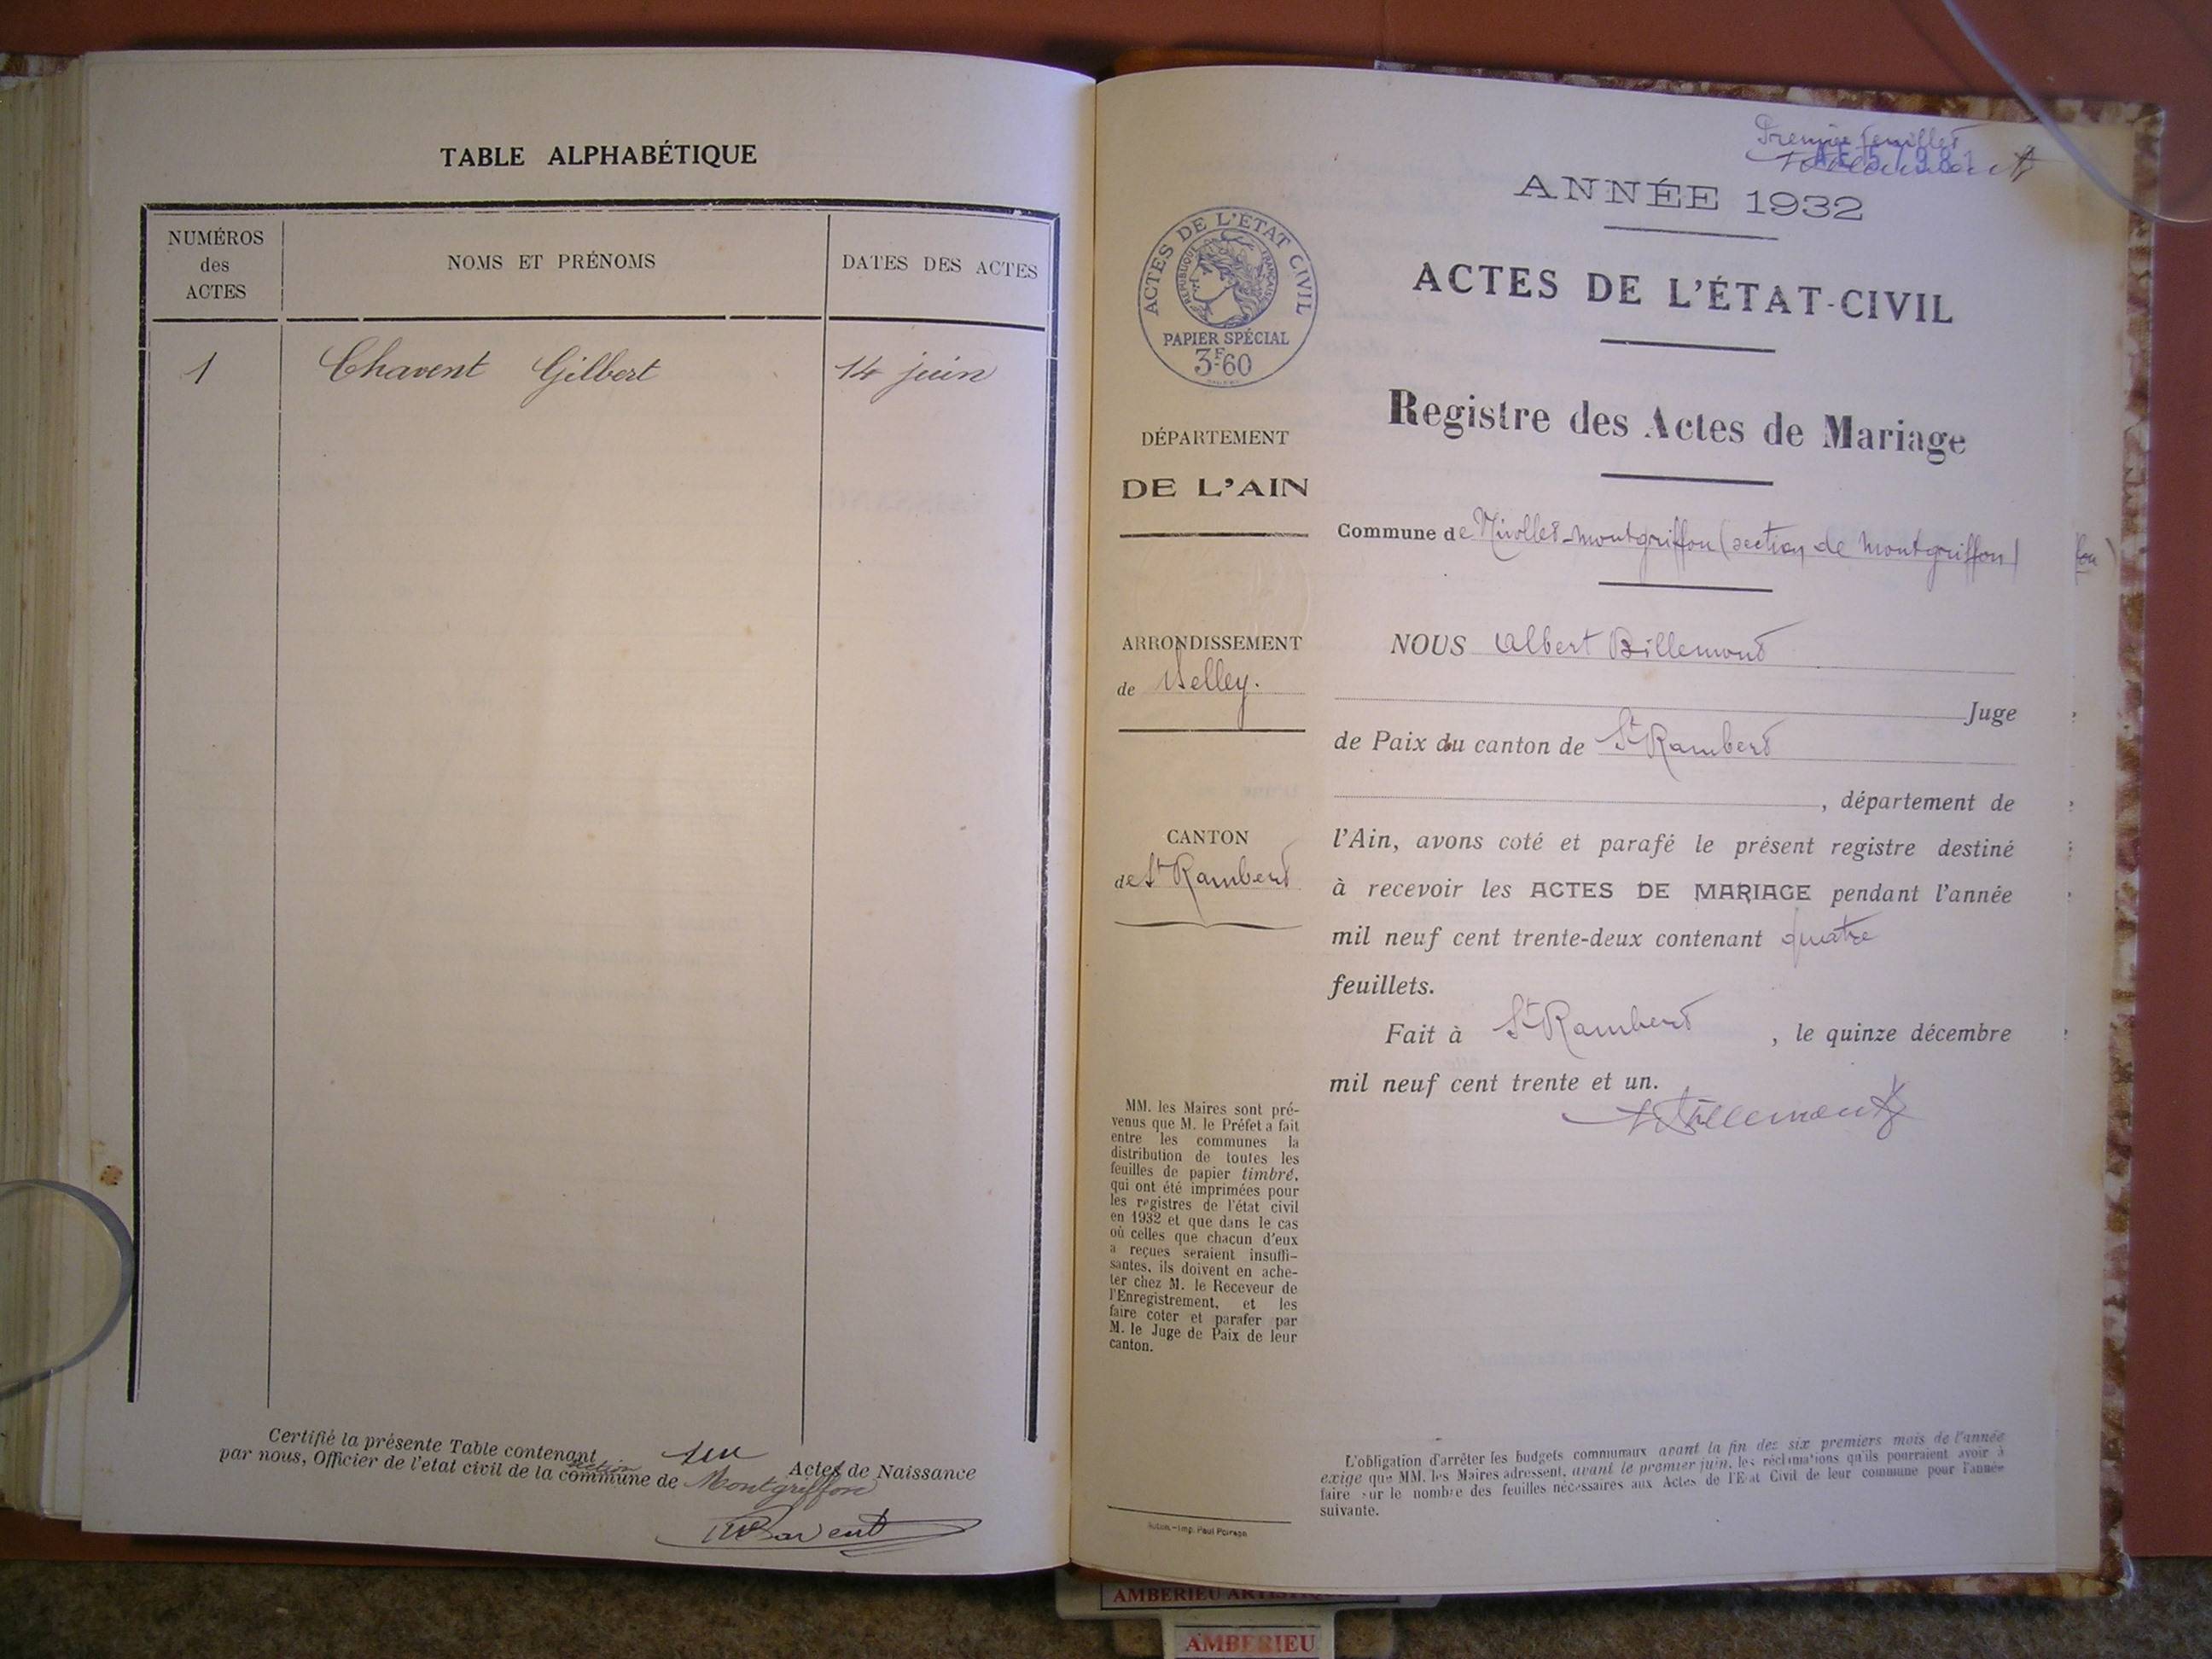 TABLE ALPHABÉTIQUE
NUMÉROS
des
ACTES
NOMS ET PRÉNOMS
DATES DES ACTES
1
Chavent Gilbert
14 juin
Certifié la présente Table contenant un Actes de Naissance
section
par nous, Officier de l'etat civil de la commune de Montgriffon
Premier feuillet
ANNÉE 1932
ACTES DE L'ÉTAT-CIVIL
Registre des Actes de Mariage
Commune de Nivollet-Montgriffon (section de Montgriffon)
NOUS Albert Billemont
Juge
de Paix du canton de St Rambert
, département de
l'Ain, avons coté et parafé le présent registre destiné
à recevoir les ACTES DE MARIAGE pendant l'année
mil neuf cent trente-deux contenant quatre
feuillets.
Fait à St Rambert , le quinze décembre
mil neuf cent trente et un.
ABillemont
ACTES DE L'ÉTAT CIVIL
RÉPUBLIQUE FRANÇAISE
PAPIER SPÉCIAL
3F60
DÉPARTEMENT
DE L'AIN
ARRONDISSEMENT
de Belley.
CANTON
de St Rambert
MM. les Maires sont pré-
venus que M. le Préfet a fait
entre les communes la
distribution de toutes les
feuilles de papier timbré,
qui ont été imprimées pour
les registres de l'état civil
en 1932 et que dans le cas
où celles que chacun d'eux
a reçues seraient insuffi-
santes, ils doivent en ache-
ter chez M. le Receveur de
l'Enregistrement, et les
faire coter et parafer par
M. le Juge de Paix de leur
canton.
L'obligation d'arrêter les budgets communaux avant la fin des six premiers mois de l'année
exige que MM. les Maires adressent, avant le premier juin, les réclamations qu'ils pourraient avoir à
faire sur le nombre des feuilles nécessaires aux Actes de l'Etat Civil de leur commune pour l'année
suivante.
Imp. Paul
AMBERIEU
AMBERIEU